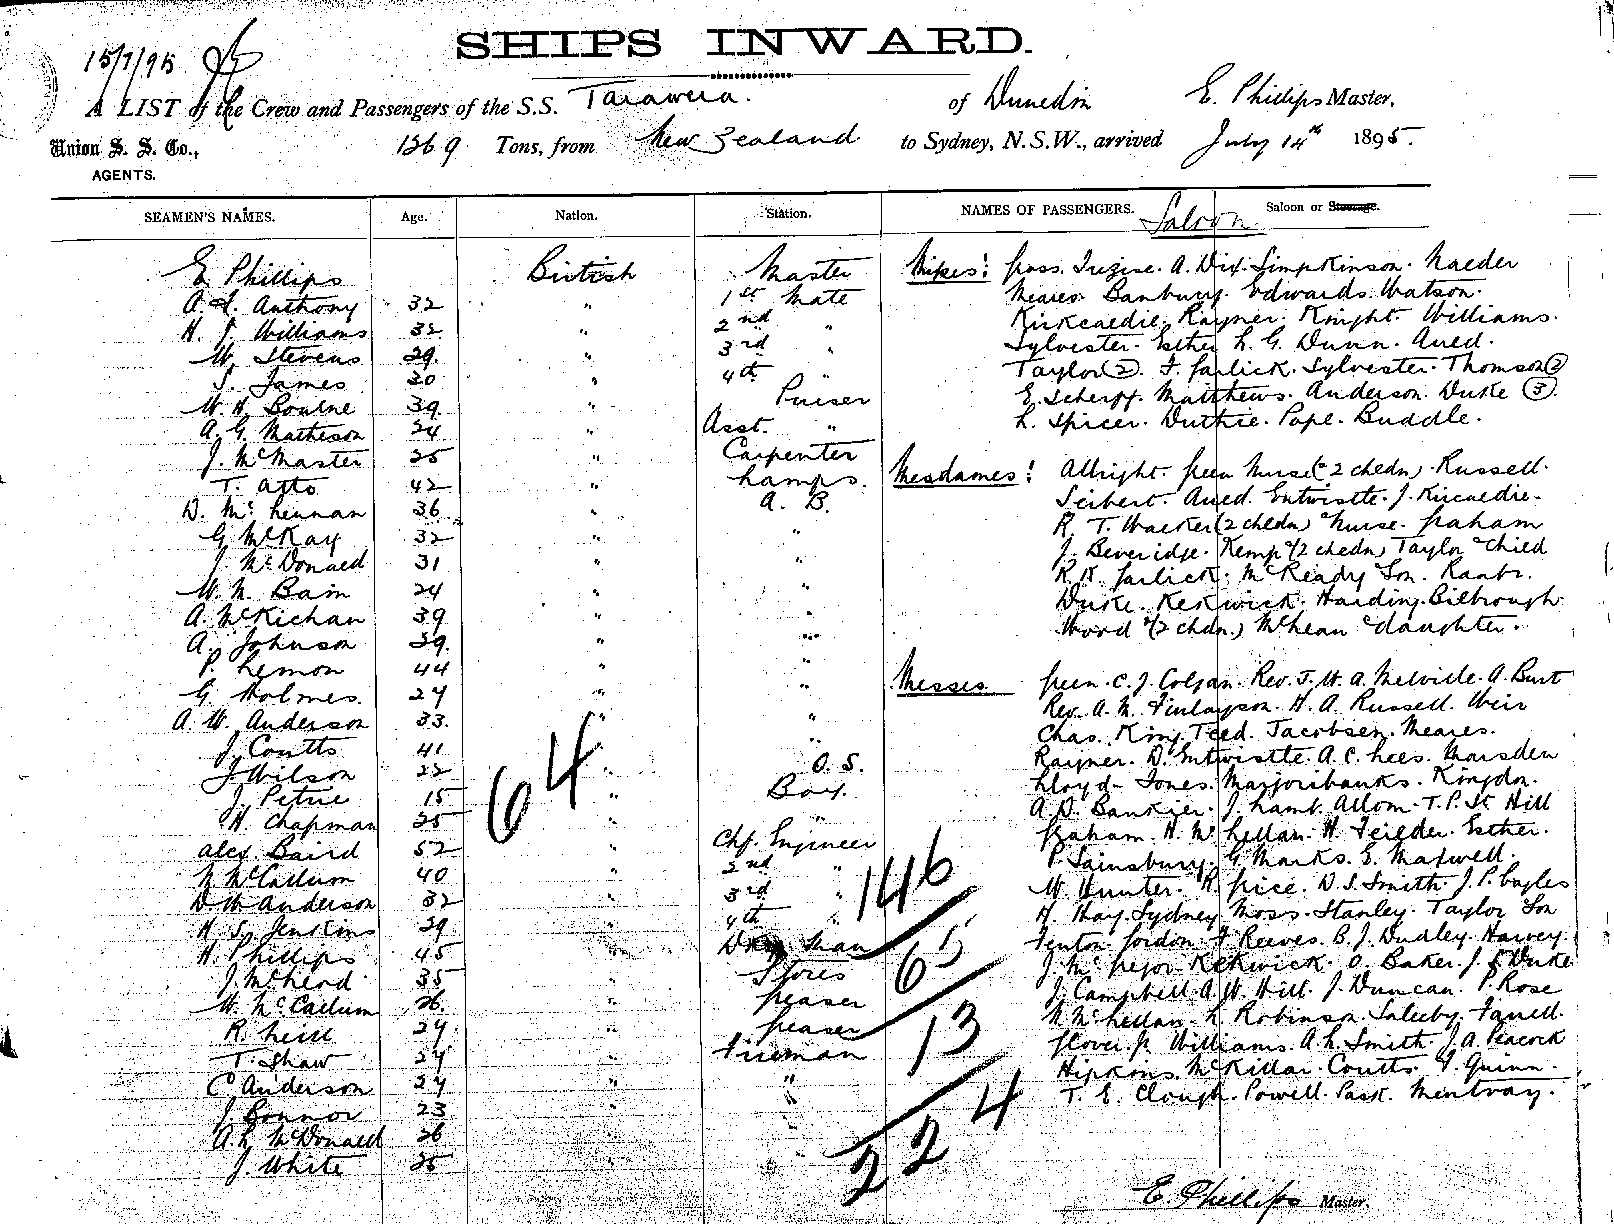 15/7/95
SHIPS INWARD.
A LIST of the Crew and Passengers of the S.S. Tarawera. of Dunedin E. Phillips Master,
Union S. S. Co., 1269 Tons, from New Zealand to Sydney, N.S.W., arrived July 14th 1895.
AGENTS.
SEAMEN'S NAMES. Age. Nation. Station. NAMES OF PASSENGERS. Saloon or Steerage.
Saloon
E Phillips British Master
A. Anthony 32 " 1st Mate
H. J. Williams 32 " 2nd "
W. Stevens 29. " 3rd "
S. James 30 " 4th "
W. H. Bourne 39 " Purser
A. G. Matheson 24 " Asst. "
J. McMaster 25 " Carpenter
T. Atto 42 " Lamps.
D. McLennan 36 " A. B.
G. McKay 32 " "
J. McDonald 31 " "
W. N. Bain 24 " "
A. McKichan 39 " "
A. Johnson 29. " "
P. Lemon 44 " "
G. Holmes. 27 " "
A. W. Anderson 33. " "
J. Coutts 41 " "
J. Wilson 22 " O. S.
J. Petrie 15 " Boy.
H. Chapman 25 " "
Alex. Baird 52 " Chf. Engineer
N. McCallum 40 " 2nd "
D. W. Anderson 32 " 3rd "
H. S. Jenkins 29 " 4th "
H. Phillips 45 " Man
J. McLeod 35 " Stores
W. McCallum 26. " Greaser
R. Neill 27 " Greaser
T. Shaw 27 " Fireman
C. Anderson 27 " "
J. Connor 23 " "
A. L. McDonald 26 "
J. White 25 "
64
146
65
13
224
Misses: Goss. A. Dix. Simpkinson. Naeder
Meares. Banbury. Edwards. Watson.
Kirkcaldie. Rayner. Knight. Williams.
Sylvester. Esther L. G. Dunn. Aued.
Taylor (2). F. Garlick. Sylvester. Thomson (2)
E. Scherff. Matthews. Anderson. Duke (3).
L. Spicer. Duthie. Pope. Buddle.
Mesdames: Allright. Green Nurse (& 2 chdn). Russell.
Seibert. Aued. Entwistle. J. Kircaldie.
R. T. Walker (2 chdn) & Nurse. Graham
J. Beveridge. Kemp & (2 chdn) Taylor & Child
R. H. Garlick. McReady & Son.
Duke. Kekwick. Harding. Bilbrough.
Wood & (2 chdn.) McLean & daughter.
Messrs. Green. C. J. Colgan. Rev. J. W. A. Melville. A. Burt
Rev. A. M. Finlayson. H. A. Russell. Weir
Chas. King. Teed. Jacobsen. Meares.
Rayner. D. Entwistle. A. C. Lees. Marsden
Lloyd-Jones. Marjoribanks. Kingdon.
A. D. Bankier. J. Lamb. Allom. T. P. St Hill
Graham. H. McLellan. H. Feilder. Esther.
P. Sainsbury. G. Marks. E. Maxwell.
W. Hunter. R. Grice. D. S. Smith. J. P.
H. Hay. Sydney Moss. Stanley. Taylor & Son
Fenton. Gordon. F Reeves. B. J. Dudley. Harvey.
J. McGregor. Kekwick. O. Baker. J. G Duke
J. Campbell. A. W. Hill. J. Duncan. P. Rose
N. McLellan. L. Robinson. Saleeby.
Glover. Jr. Williams. A. L. Smith. J. A. Peacock
Hipkins. McKillar. Coutts. T. Quinn.
T. E. Clough. Powell. Park.
E Phillips Master.